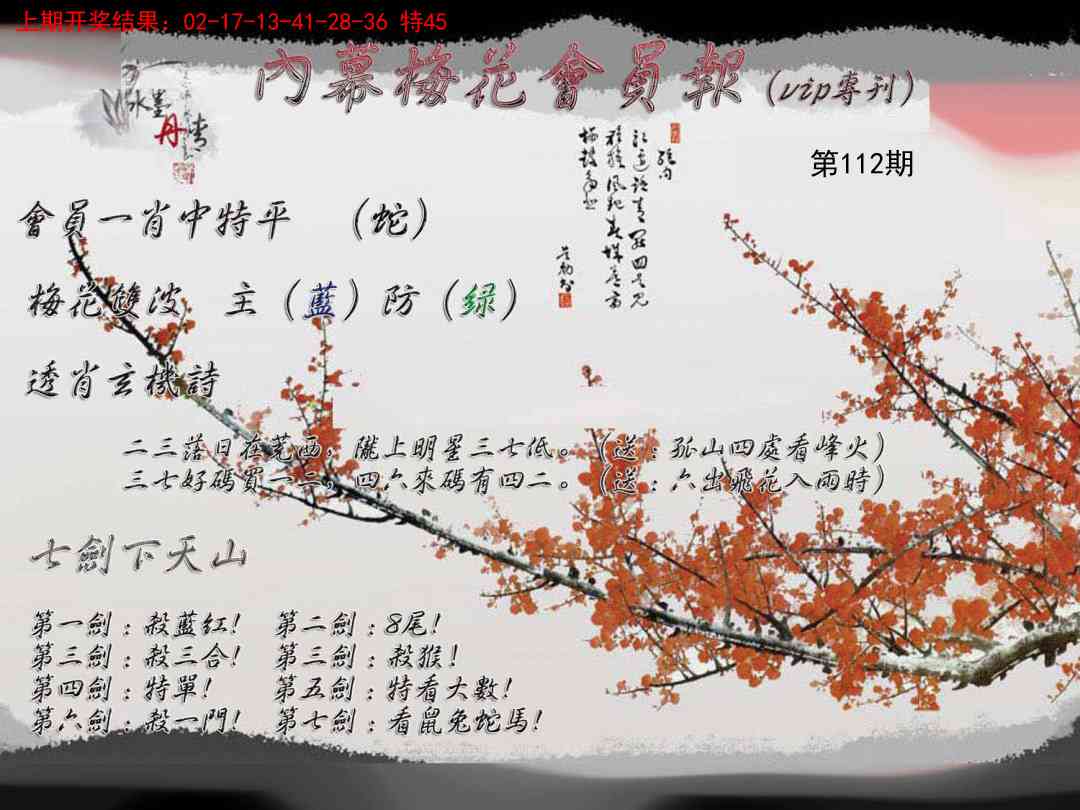 上期开奖结果：02-17-13-41-28-36 特45
內幕梅花會員報（vip專刊）
水墨
丹青
第112期
會員一肖中特平 （蛇）
梅花雙波 主（藍）防（绿）
透肖玄機詩
二三落日在莞西，隴上明星三七低。（送：孤山四處看峰火）
三七好碼買一二，四六來碼有四二。（送：六出飛花入雨時）
七劍下天山
第一劍：殺藍紅！ 第二劍：8尾！
第三劍：殺三合！ 第三劍：殺猴！
第四劍：特單！ 第五劍：特看大數！
第六劍：殺一門！ 第七劍：看鼠兔蛇馬！